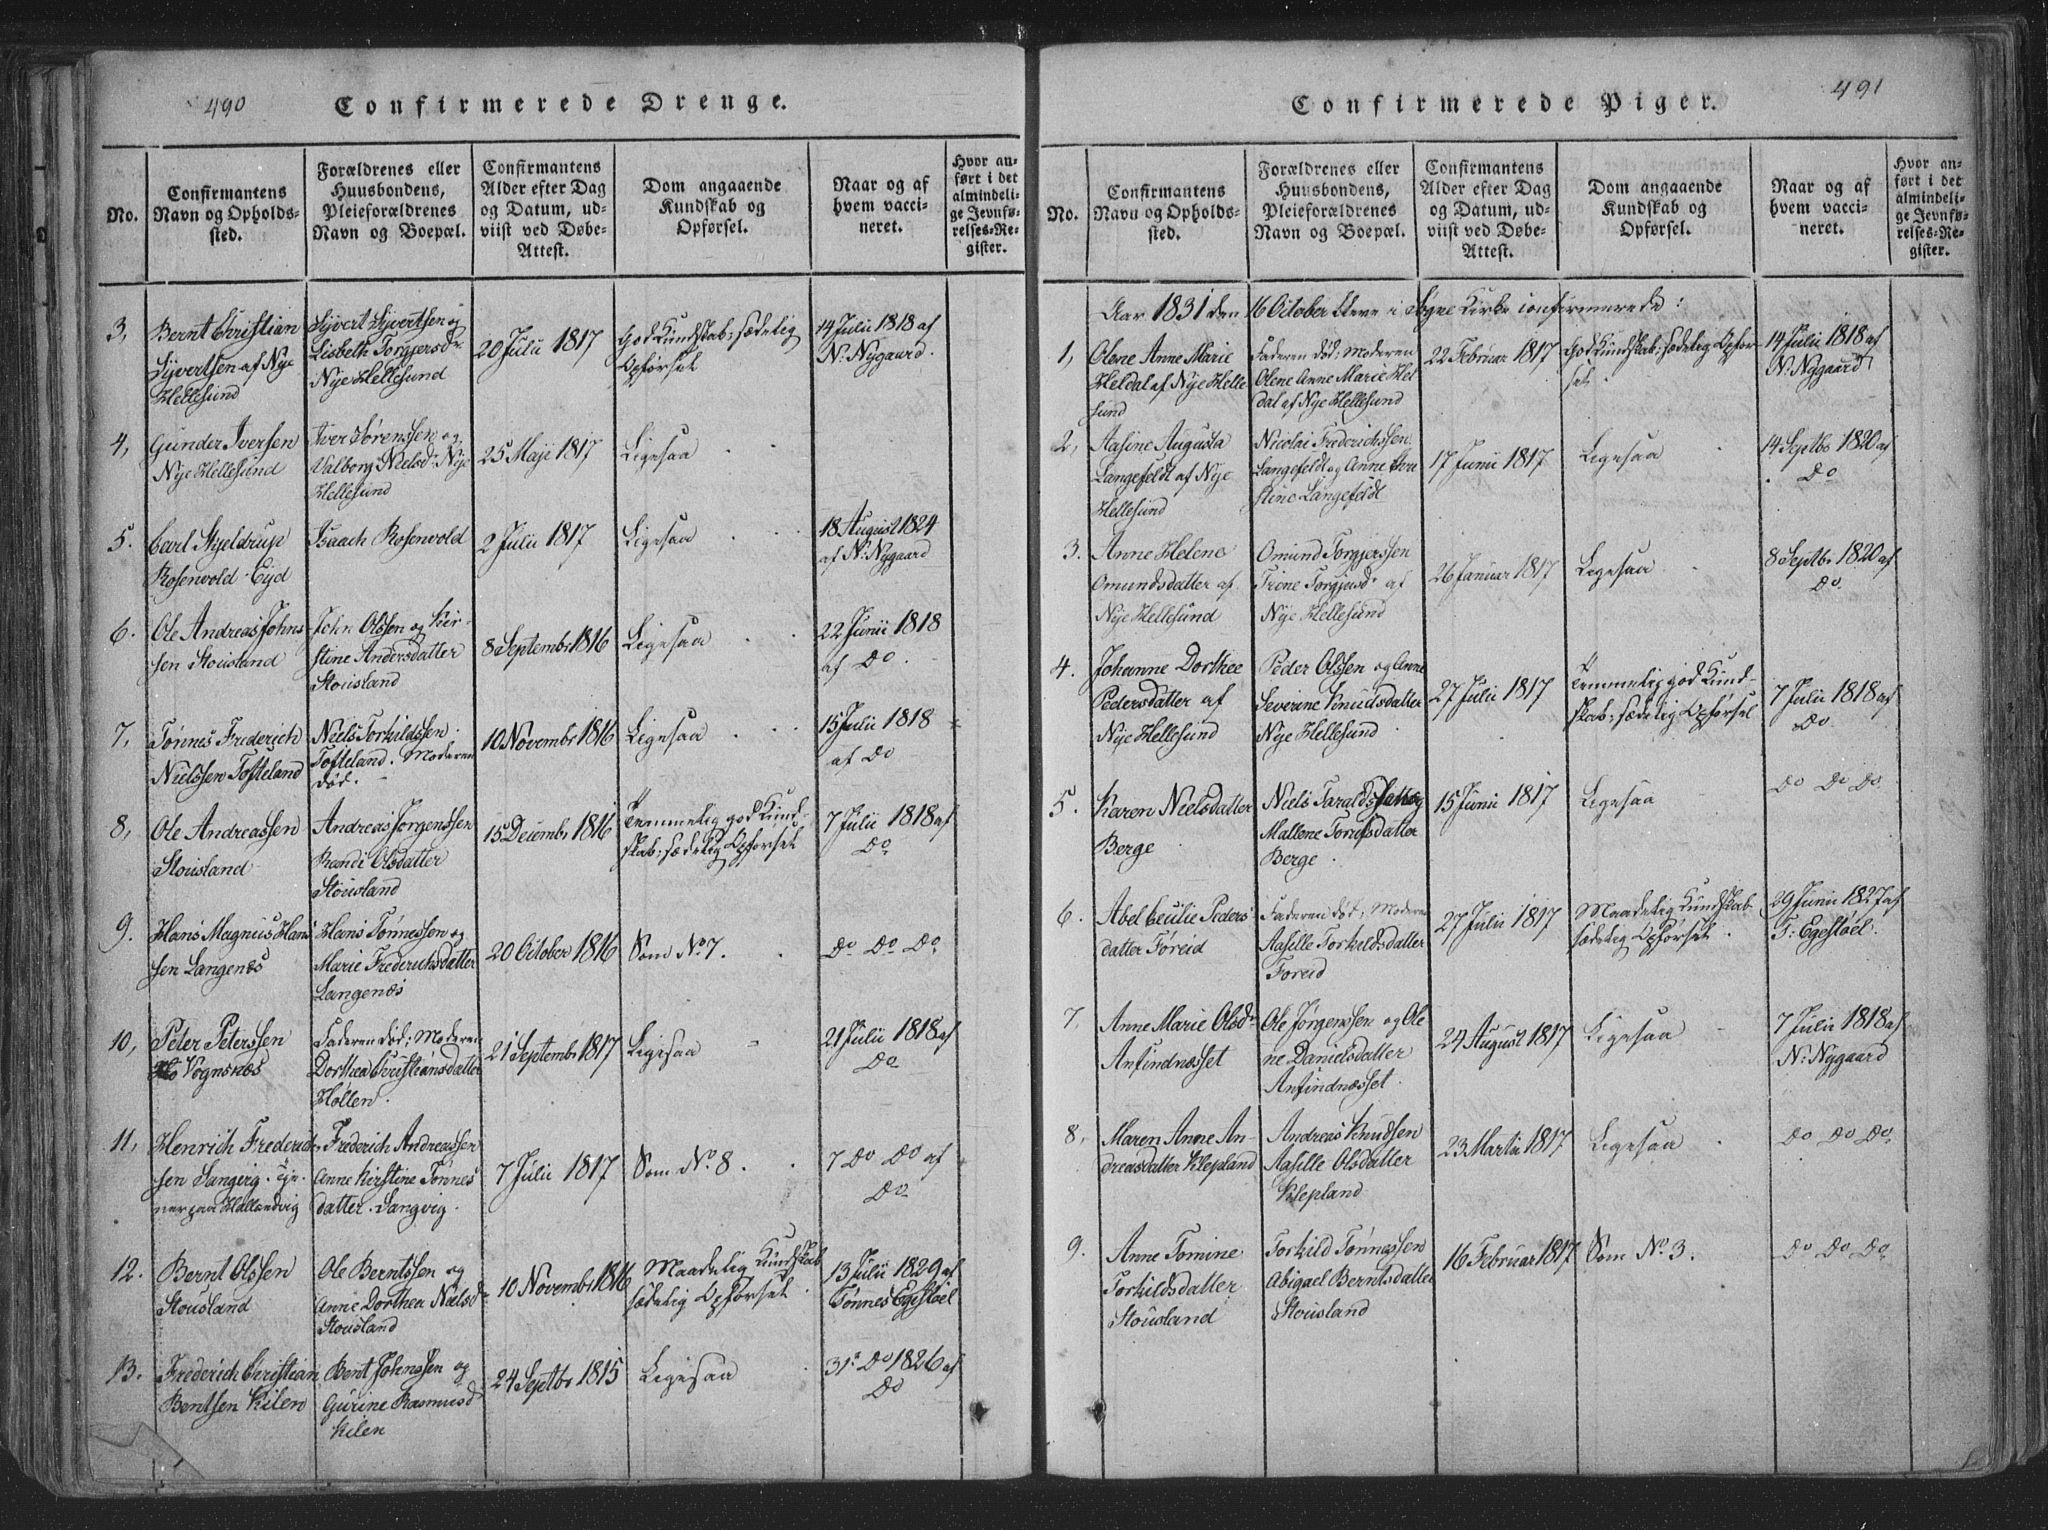 490
Confirmerede Drenge.
No.
Confirmantens
Navn og Opholds-
sted.
Forældrenes eller
Huusbondens,
Pleieforældrenes
Navn og Boepæl.
Confirmantens
Alder efter Dag
og Datum, ud-
viist ved Døbe-
Attest.
Dom angaaende
Kundskab og
Opførsel.
Naar og af
hvem vacci-
neret.
Hvor an-
ført i det
almindeli-
ge Jevnfø-
relses-Re-
gister.
3,
Bernt Christian
Syvertsen af Nye
Hellesund
Syvert Syvertsen og
Lisbeth Torgjersdr
Nye Hellesund
20 Julii 1817
God Kundskab; sædelig
Opførsel
14 Julii 1818 af
N: Nygaard.
4,
Gunder Iversen
Nye Hellesund
Iver Sørenssen og
Valborg Nielsdr Nye
Hellesund
25 Maji 1817
Ligesaa
5.
Carl Stjeldrup
Rosenvold Eyd
Isaach Rosenvold
2 Julii 1817
Ligesaa
18 August 1824
af N: Nygaard
6.
Ole Andreas Johns
sen Stousland
John Olssen og Kir-
stine Andersdatter
Stousland
8 Septembr 1816
Ligesaa
22 Junii 1818
af Do.
7,
Tønnes Frederich
Nielssen Tofteland
Niels Torkildssen
Tofteland. Moderen
død.
10 Novembr 1816
Ligesaa
15 Julii 1818
af Do
8,
Ole Andreassen
Stousland
Andreas Jørgenssen
Randi Olsdatter
Stousland
15 Decembr 1816
Temmelig god Kund-
skab; sædelig Opførsel
7 Julii 1818 af
Do
9.
Hans Magnus Hans
sen Langenæs
Hans Tønnessen og
Marie Frederichsdatter
Langenæs
20 October 1816
Som No 7.
Do Do Do
10,
Peter Peterssen
Vognsnæs
Faderen død; Moderen
Dorthea Christiansdatter
Høllen.
21 Septembr 1817
Ligesaa
21 Julii 1818 af
Do
11,
Henrich Frederich-
sen Langvig. Tje-
ner paa Hallandvig
Frederich Andreassen
Anne Kirstine Tønnes
datter. Langvig.
7 Julii 1817
Som No 8.
7 Do Do af
Do
12.
Bernt Olssen
Stousland
Ole Berntssen og
Anne Dorthea Nielsdr
Stousland
10 Novembr 1816
Maadelig Kundskab
sædelig Opførsel.
13 Julii 1829 af
Tønnes Egestøel
13.
Frederich Christian
Bentsen Kilen
Bent Johnssen og
Gurine Rasmusdr
Kilen
24 Septbr 1815
Ligesaa
31 Do 1826 af
Do
491
Confirmerede Piger.
No.
Confirmantens
Navn og Opholds-
sted.
Forældrenes eller
Huusbondens,
Pleieforældrenes
Navn og Boepæl.
Confirmantens
Alder efter Dag
og Datum, ud-
viist ved Døbe-
Attest.
Dom angaaende
Kundskab og
Opførsel.
Naar og af
hvem vacci-
neret.
Hvor an-
ført i det
almindeli-
ge Jevnfø-
relses-Re-
gister.
Aar 1831 den 16 October bleve i Søgne Kirke confirmerede:
1,
Olene Anne Marie
Heldal af Nye Helle
sund
Faderen død; Moderen
Olene Anne Marie Hel
dal af Nye Hellesund
22 Februar 1817
God Kundskab; sædelig Opfør-
sel.
14 Julii 1818 af
N: Nygaard
2,
Aasine Augusta
Langefeldt af Nye
Hellesund
Nicolai Frederichssen
Langefeldt og Anne Chri
stine Langefeldt
17 Junii 1817
Ligesaa
14 Septbr 1820 af
Do
3.
Anne Helene
Omundsdatter af
Nye Hellesund
Omund Torgjerssen
Trine Torgjersdr af
Nye Hellesund
26 Januar 1817
Ligesaa
8 Septbr 1820 af
Do.
4.
Johanne Dorthee
Pedersdatter af
Nye Hellesund
Peder Olssen og Anne
Severine Knudsdatter
Nye Hellesund
27 Julii 1817
Temmelig god Kund-
skab; sædelig Opførsel
7 Julii 1818 af
Do.
5.
Karen Nielsdatter
Berge
Niels Taraldssen og
Mallene Torufsdatter
Berge.
15 Junii 1817
Ligesaa
Do Do Do
6.
Abel Cecilie Peders
datter Føreid
Faderen død; Moderen
Aasille Torkildsdatter
Foreid
27 Julii 1817
Maadelig Kundskab
sædelig Opførsel.
29 Junii 1827 af
T: Egestøel.
7,
Anne Marie Olsdr
Anfindnæsset
Ole Jørgenssen og Ole
ne Danielsdatter
Anfindnæsset.
24 August 1817
Ligesaa
7 Julii 1818 af
N: Nygaard
8,
Maren Anne An-
dreasdatter Klepland
Andreas Knudsen
Aasille Olsdatter
Klepland
23 Martii 1817
Ligesaa
Do Do Do
9.
Anne Tomine
Torkildsdatter
Stousland
Torkild Tønnessen
Abigael Berntsdatter
Stousland
16 Februar 1817
Som No 3.
Do Do Do